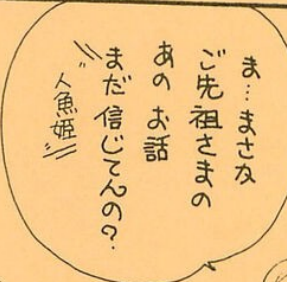 ま…まさか
ご先祖さまの
あの お話
まだ信じてんの?
人魚姫